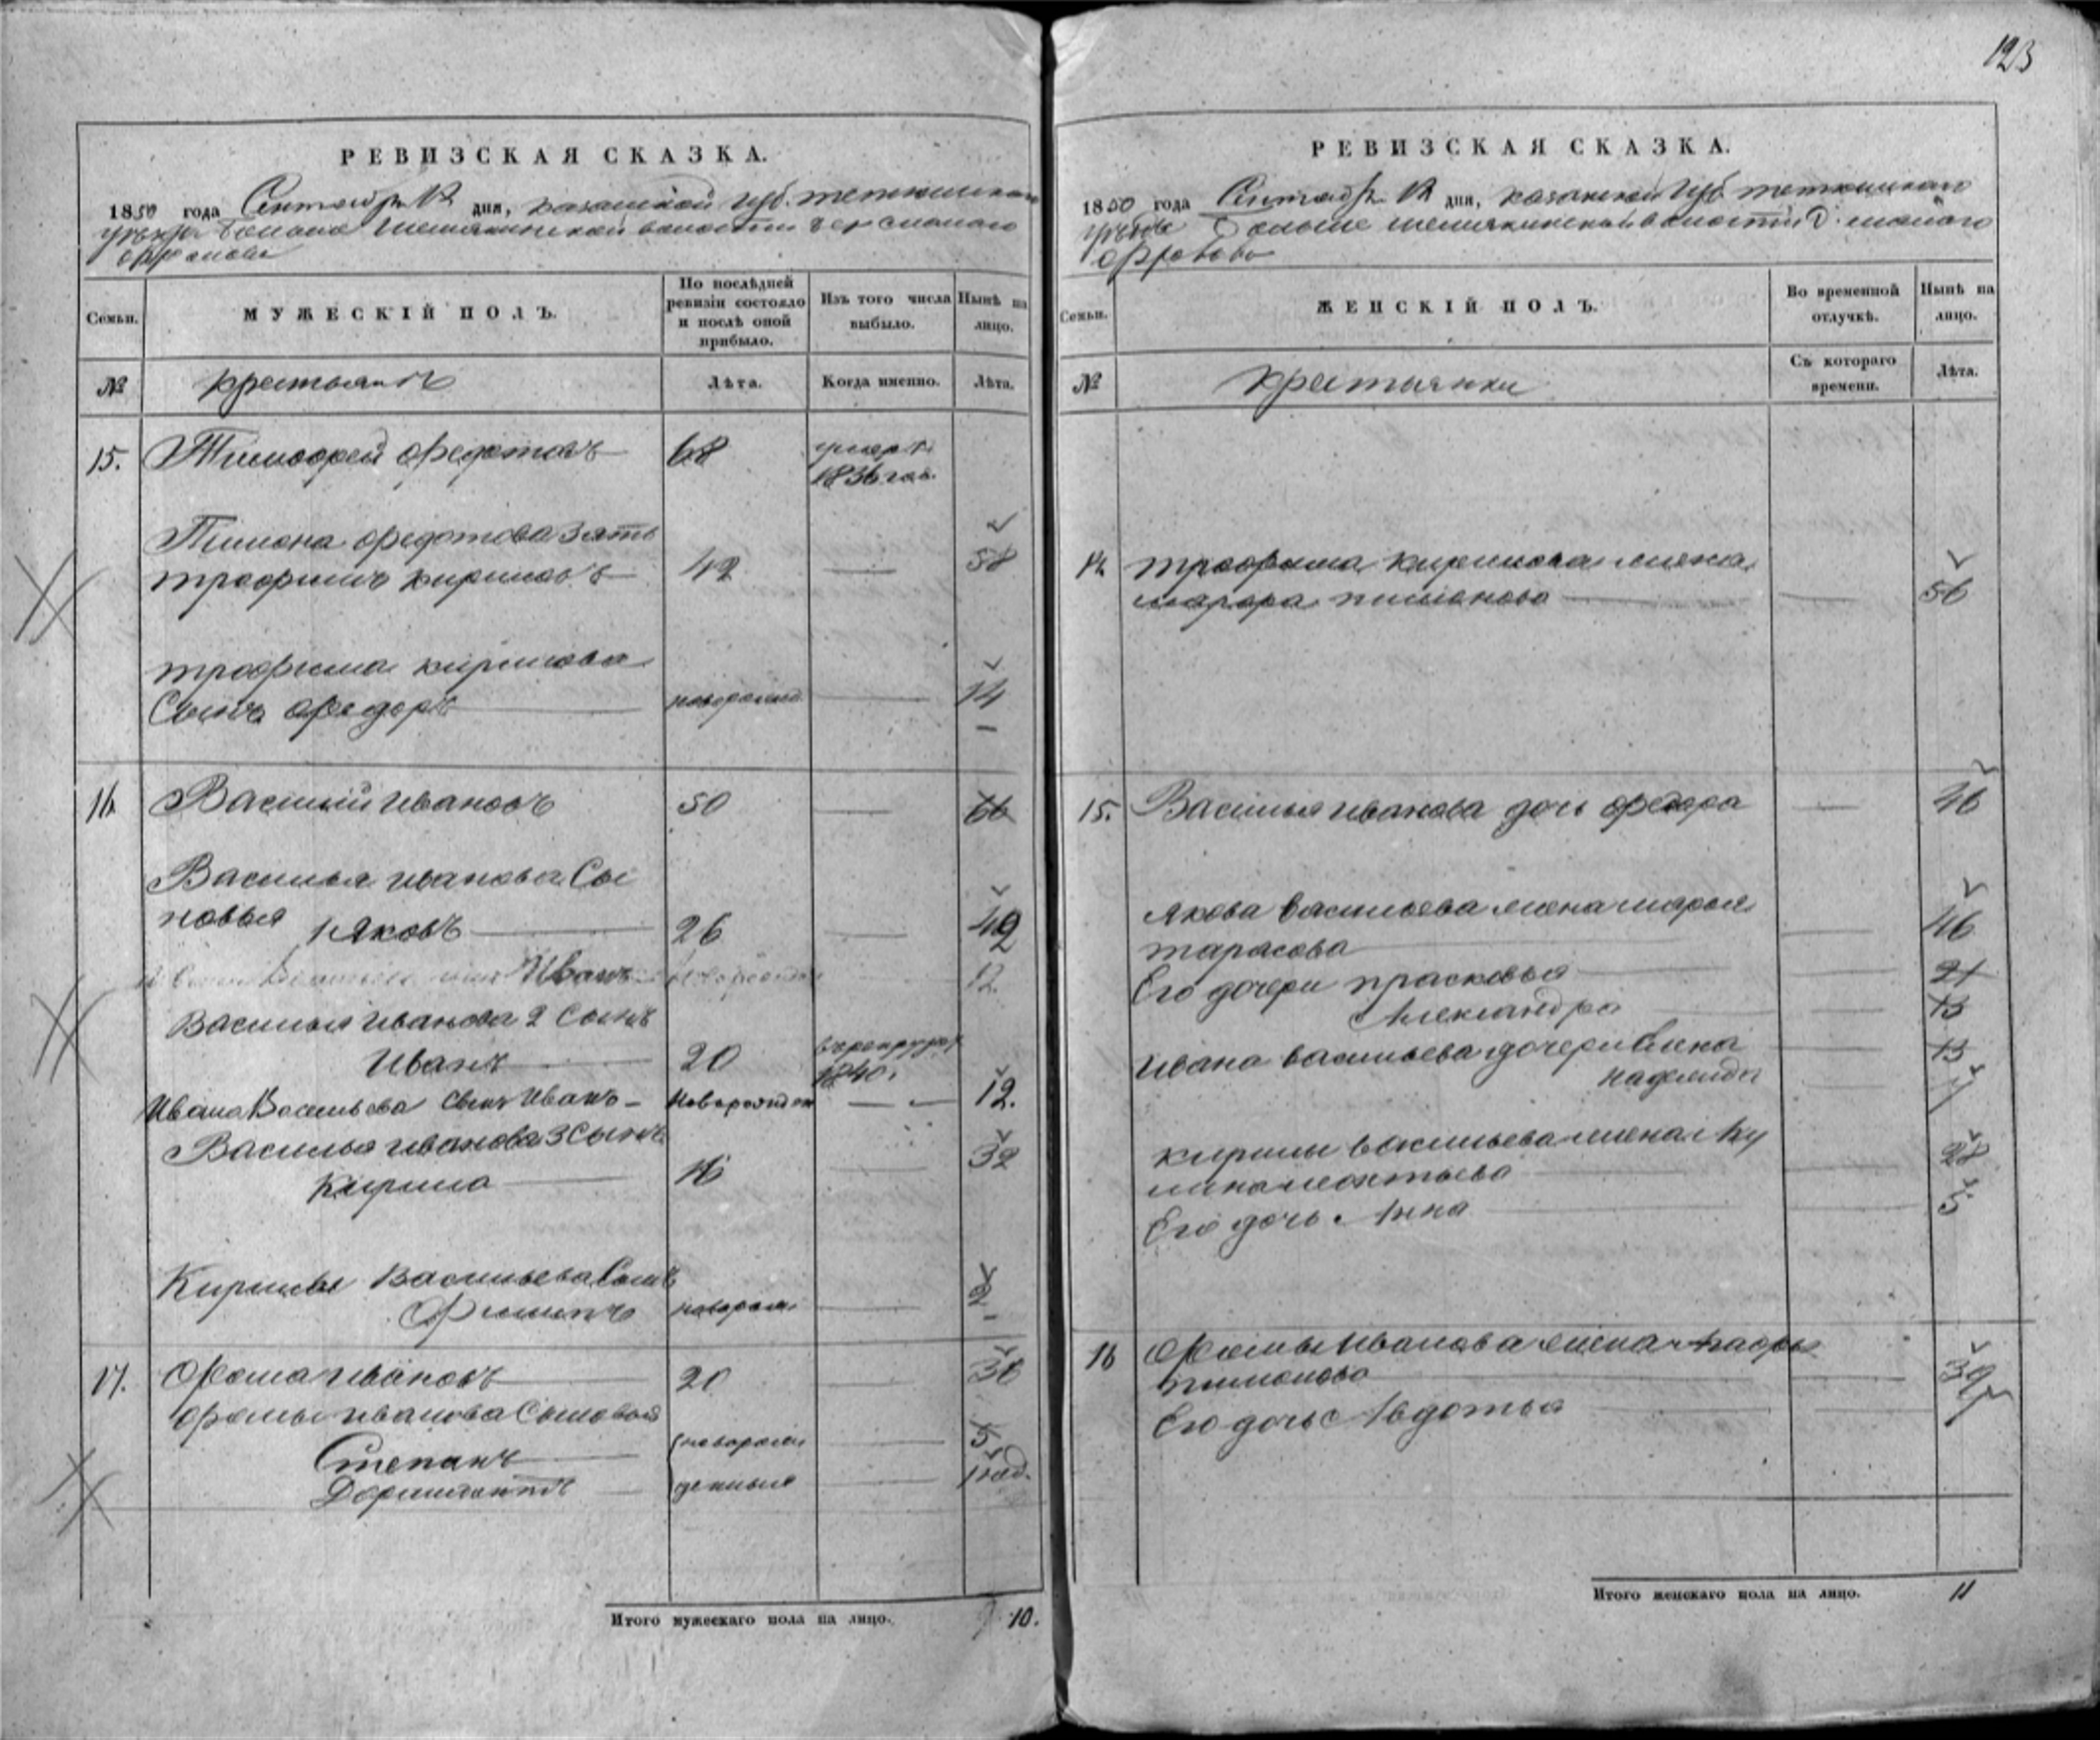 123
РЕВИЗСКАЯ СКАЗКА.
1850 года Сентября 12 дня, казанской губ. тетюшскаго
уѣзда волости дер малаго
Фролова
Семьи.
МУЖЕСКІЙ ПОЛЪ.
По послѣдней ревизіи состояло и послѣ оной прибыло.
Изъ того числа выбыло.
Нынѣ на лицо.
№
крестьянъ
Лѣта.
Когда именно.
Лѣта.
15. Тимофей Федотовъ 68 умеръ
1836 год.
Пимона Федотова зять
трофимъ кириловъ 42 58
трофима кирилова
Сынъ Федоръ новорожд 14
16 Василий Ивановъ 50 66
Василья иванова Сы
новья 1 Яковъ 26 42
Иванъ новорожден 12
Василья Иванова 2 Сынъ
Иванъ 20 в рекруты
1840.
Ивана Васильева сынъ Иванъ новорожден 12.
Василья иванова 3 Сынъ
Кирила 16 32
Кирилы Васильева Сынъ
Филипъ новорож 2
17. Фома Ивановъ 20 36
Фомы иванова Сыновья
Степанъ новорож 5
Дормидонтъ денные 1 нед.
Итого мужескаго пола на лицо. 10.
РЕВИЗСКАЯ СКАЗКА.
1850 года Сентябр. 12 дня, казанской губ тетюшскаго
уѣзда волости Д. малаго
Фролова
Семьи.
ЖЕНСКІЙ ПОЛЪ.
Во временной отлучкѣ.
Нынѣ на лицо.
№
крестьянки
Съ котораго времени.
Лѣта.
14 трофима кирилова жена
марфа пимонова 56
15. Василья иванова дочь 46
Якова Васильева жена марья
тарасова 46
Его дочери прасковья 21
Александра 13
Ивана васильева дочери Елена 13
надежда
кирилы васильева жена Аку
лина леонтьева 28
Его дочь Анна 5
16 Фомы Иванова жена
пимонова 39
Его дочь Авдотья
Итого женскаго пола на лицо. 11